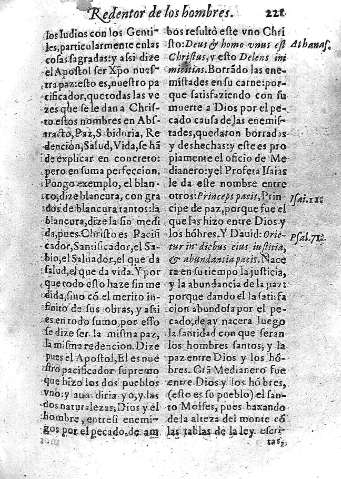 Redentor de los hombres. 221
los Iudios con los Genti-
les, particularmente en las
cosas sagradas: y assi dize
el Apostol ser Xpo nues-
tra paz: esto es, nuestro pa
cificador, que todas las ve
zes que se le dan a Chris-
to estos nombres en Abs-
tracto, Paz, Sabiduria, Re
dencion, Salud, Vida, se hã
de explicar en concreto:
pero en suma perfeccion,
Pongo exemplo, el blan-
co, dize blancura, con gra
dos de blancura tantos: la
blancura, dize la sin medi
da, pues Christo es Pacifi
cador, Santificador, el Sa-
bio, el Saluador, el que da
salud, el que da vida. Y por
que todo esto haze sin me
dida, sino cõ el merito in-
finito de sus obras, y assi
es en todo sumo, por esso
se dize ser la misma paz,
la misma redencion. Dize
pues el Apostol, El es nue
stro pacificador supremo
que hizo los dos pueblos
vno: y aun diria yo, y las
dos naturalezas, Dios y el
hombre, entre si enemi-
gos por el pecado, de am
bos resultó este vno Chri
sto: Deus & homo vnus est
Christus, y esto Delens ini
micitias. Borrãdo las ene-
mistades en su carne: por-
que satisfaziendo con su
muerte a Dios por el pe-
cado causa de las enemis-
tades, quedaron borradas
y deshechas: y este es pro-
piamente el oficio de Me
dianero: y el Profeta Isaias
le da este nombre entre
otros: Princeps pacis, Prin
cipe de paz, porque fue el
que las hizo entre Dios y
los hõbres. Y Dauid: Orie-
tur in diebus eius iustitia,
& abundantia pacis. Nace
ra en su tiempo la justicia,
y la abundancia de la paz:
porque dando el la satisfa
cion abundosa por el pe-
cado, de ay nacera luego
la santidad con que seran
los hombres santos; y la
paz entre Dios y los hõ-
bres. Grã Medianero fue
entre Dios y los hõbres,
(esto es su pueblo) el san-
to Moises, pues baxando
de la alteza del monte cõ
las tablas de la ley escri-
Athanas.
Psal. 71.